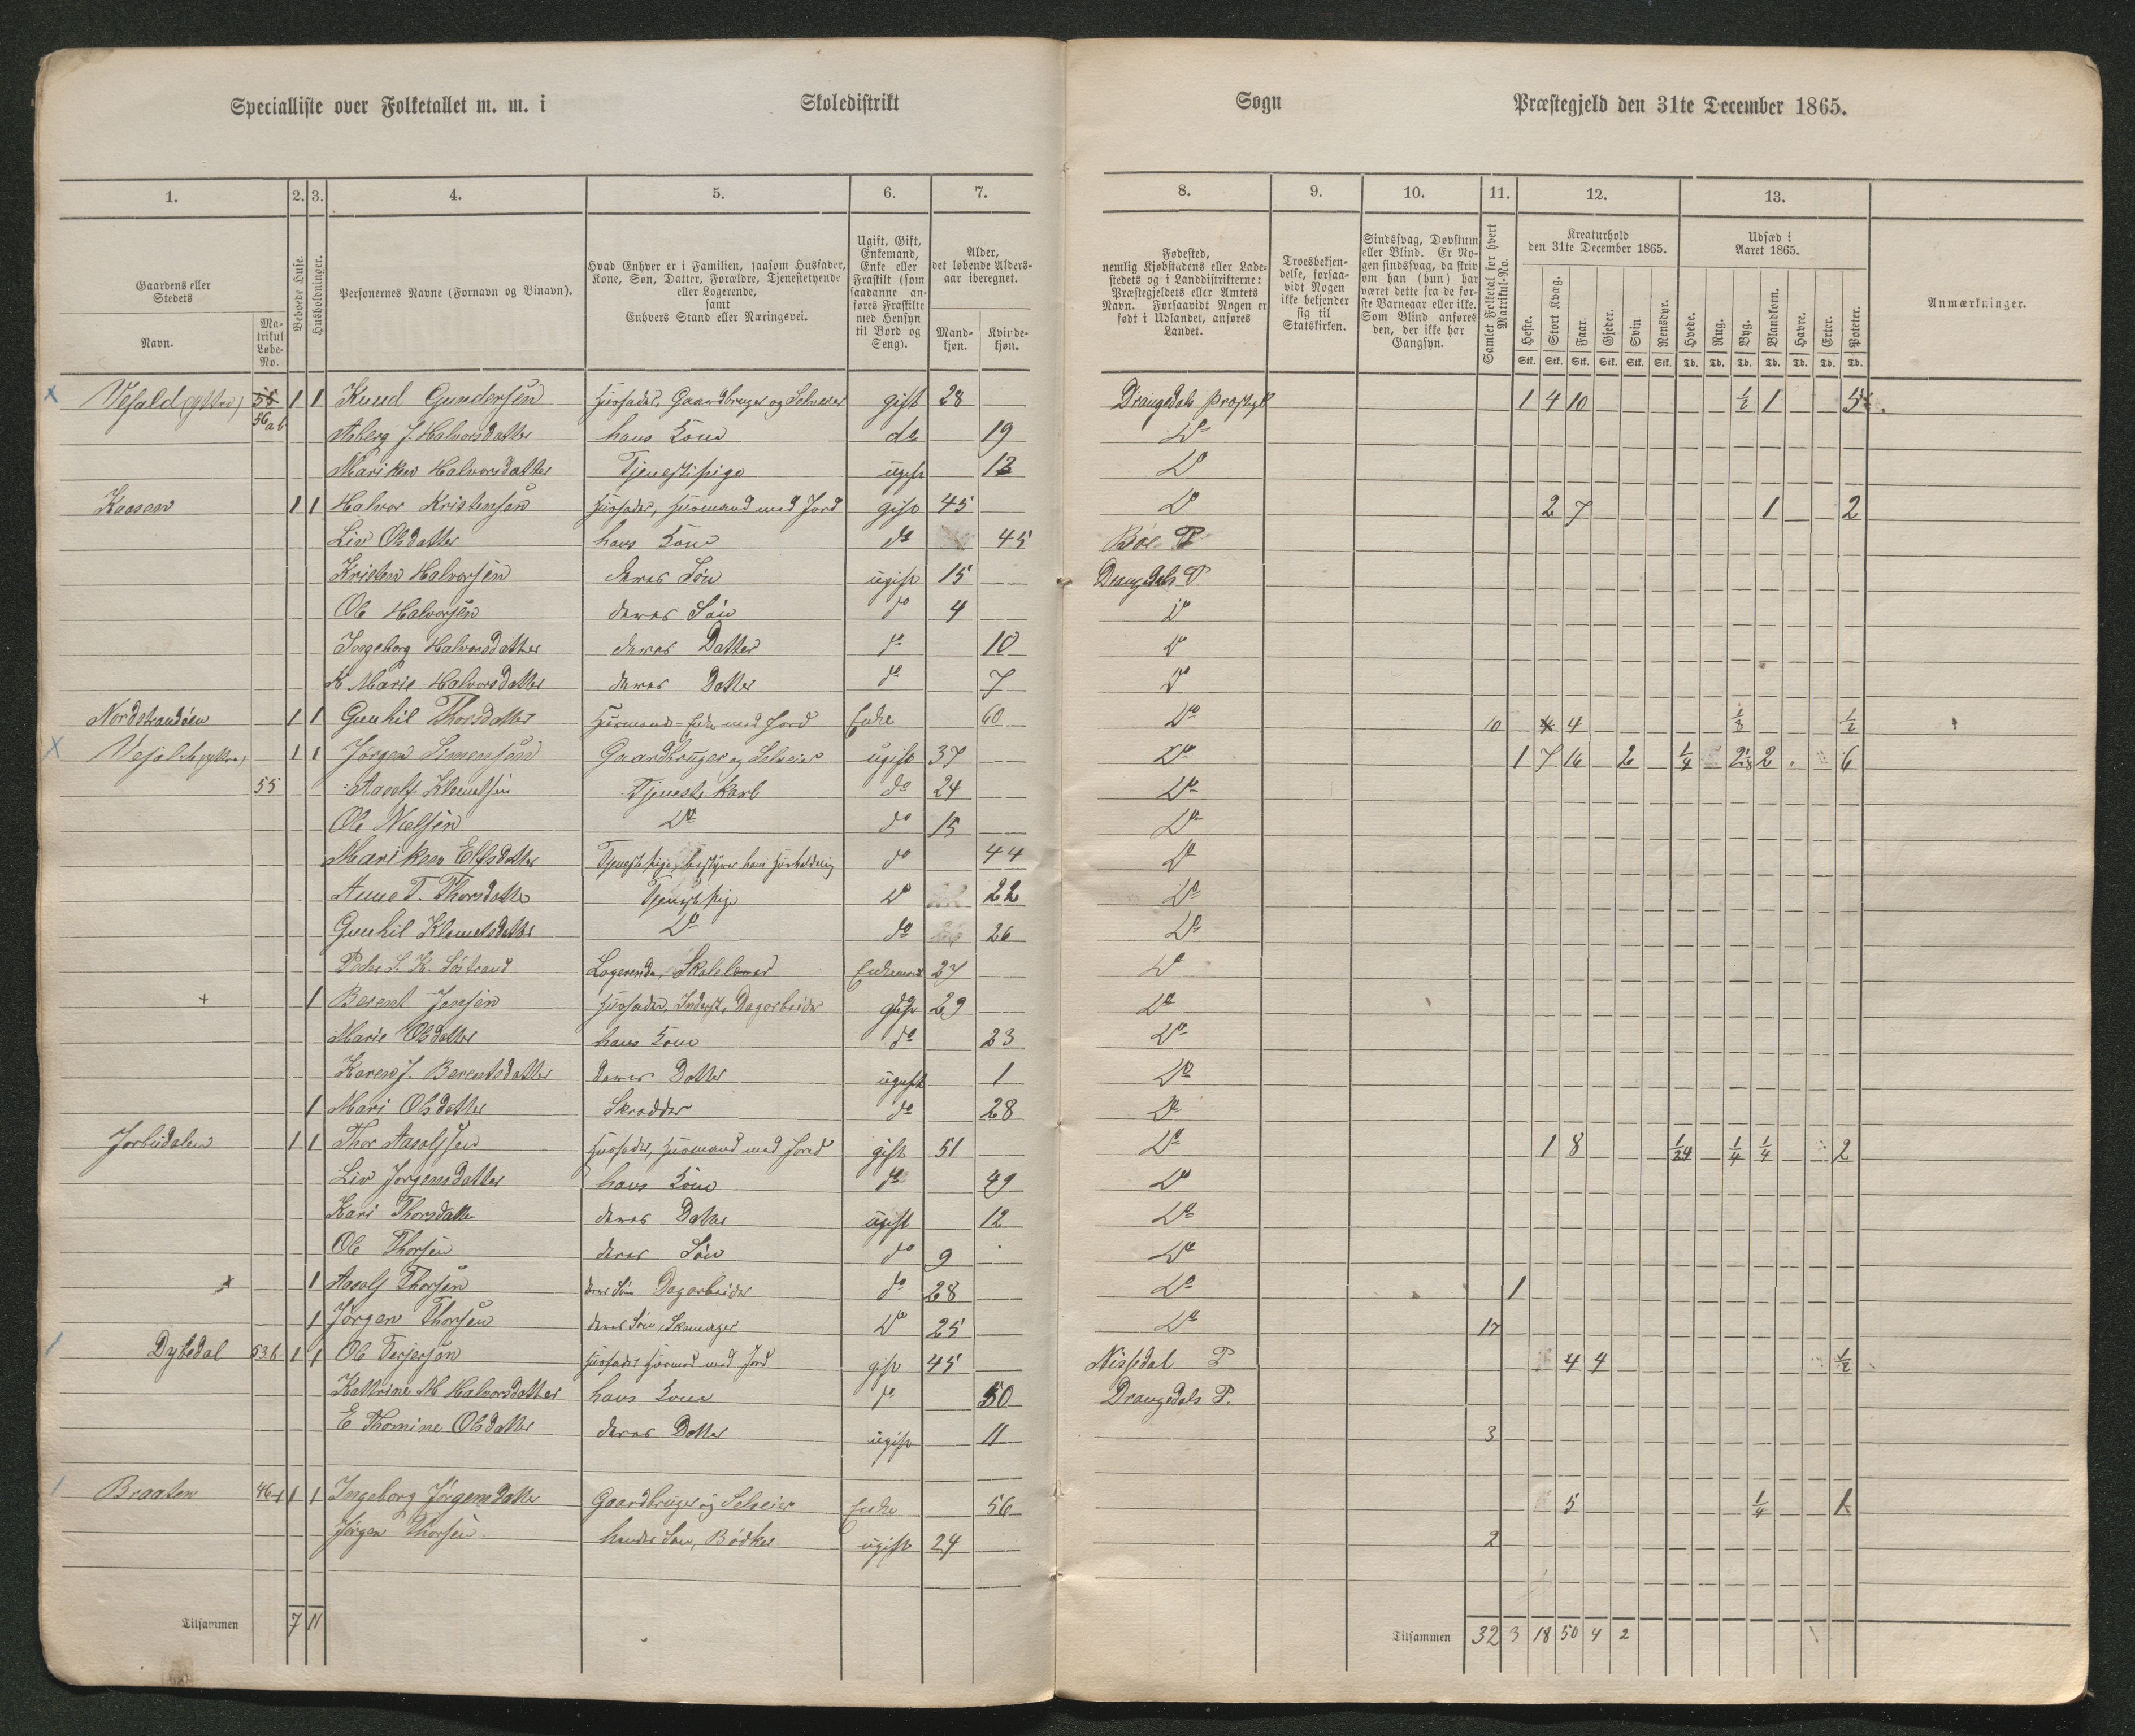 Specialliste over Folketallet m. m. i Skoledistrikt Sogn Præstegjeld den 31te December 1865.
1. 2. 3. 4. 5. 6. 7. 8. 9. 10. 11. 12. 13.
Gaardens eller Stedets Navn.
Matrikul Løbe-No.
Beboede Huse.
Husholdninger.
Personernes Navne (Fornavn og Binavn).
Hvad Enhver er i Familien, saasom Husfader, Kone, Søn, Datter, Forældre, Tjenestetyende eller Logerende, samt Enhvers Stand eller Næringsvei.
Ugift, Gift, Enkemand, Enke eller Fraskilt (som saadanne anføres Fraskilte med Hensyn til Bord og Seng).
Alder, det løbende Alders-aar iberegnet.
Mand-kjøn. Kvinde-kjøn.
Fødested, nemlig Kjøbstadens eller Ladestedets og i Landdistrikterne: Præstegjeldets eller Amtets Navn. Forsaavidt Nogen er født i Udlandet, anføres Landet.
Troesbekjendelse, forsaavidt Nogen ikke bekjender sig til Statskirken.
Sindssvag, Døvstum eller Blind. Er Nogen sindssvag, da skriv om han (hun) har været dette fra de første Barneaar eller ikke. Som Blind anføres den, der ikke har Gangsyn.
Samlet Folketal for hvert Matrikul-No.
Kreaturhold den 31te December 1865.
Heste. Stort Kvæg. Faar. Gjeder. Svin. Rensdyr.
Udsæd i Aaret 1865.
Hvede. Rug. Byg. Blandkorn. Havre. Erter. Poteter.
Stk. Stk. Stk. Stk. Stk. Stk. Td. Td. Td. Td. Td. Td. Td.
Anmærkninger.
x 55 1 1 Knud Gundersøn Husfader, Gaardbruger og Selveier gift 28 Drangedals 1 4 10 1/2 1
56 ab Halvorsdatter hans Kone do 19 Do
Mariken Halvorsdatter Tjenestepige ugift Do
Kaasen 1 1 Halvor Kristensøn Husfader, Husmand med Jord gift 45 Do 2 7 1 2
Liv Olsdatter hans Kone do 45 Bøe P
Kristen Halvorsøn deres Søn ugift 15 Drangedals P
Ole Halvorsøn deres Søn do 4 Do
Ingeborg Halvorsdatter deres Datter do 10 Do
K Marie Halvorsdatter deres Datter do 7 Do
Nordstrandöen 1 1 Gunhil Thorsdatter Husmands-Enke med Jord Enke 60 Do 10 4 1/8 1/2
x 1 1 Jørgen Simensøn Gaardbruger og Selveier ugift 37 Do 1 7 16 2 1/4 2 6
55 Aasolf Klemetsøn Tjenestekarl do 24 Do
Ole Nielsøn Do do 15 Do
Mariken Tjenestepige, bestyrer hans Husholdning do 44 Do
Anne T. Thorsdatter Tjenestepige Do 22 Do
Gunhil Klemetsdatter Do do 26 Do
Peder S. K. Lögerende, Skolelærer Enkemand 27 Do
+ 1 Berent Jensøn Husfader, Inderst, Dagarbeider gift 29 Do
Marie Olsdatter hans Kone do 23 Do
Karen J. Berentsdatter deres Datter ugift 1 Do
1 Mari Olsdatter Skrædder do 28 Do
1 1 Thor Aasolfsøn Husfader, Husmand med Jord gift 51 Do 1 8 1/24 1/4 1/4 2
Liv Jorgensdatter hans Kone do 49 Do
Kari Thorsdatter deres Datter ugift 12 Do
Ole Thorsøn deres Søn do 9 Do
x 1 Aasolf Thorsøn deres Søn Dagarbeider do 28 Do 1
1 Jørgen Thorsøn deres Søn, Skomager Do 25 Do 17
Dybedal 53b 1 1 Ole Terjersøn Husfader Husmand med Jord gift 45 Nissedal P 4 4 1/2
Kathrine M Halvorsdatter hans Kone do 50 Drangedals P.
E Thomine Olsdatter deres Datter ugift 11 3
Braaten 46 1 1 Ingeborg Jörgensdatter Gaardbruger og Selveier Enke 56 5 1/4 1
Jörgen Thorsøn hendes Søn, Bödker ugift 24 2
Tilsammen 7 11 Tilsammen 32 3 18 50 4 2